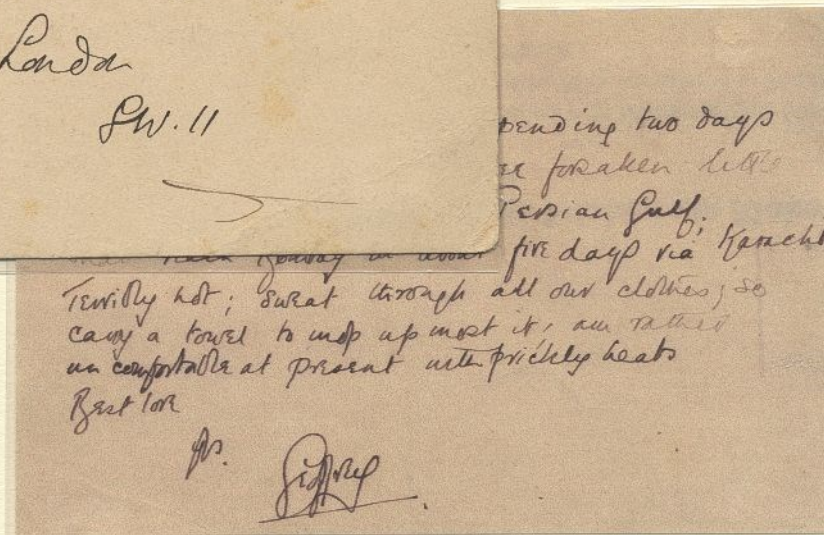 London
S.W. 11
pending two days
forsaken little
Persian Gulf;
five days via Karachi
Terribly hot; sweat through all our clothes; so
carry a towel to mop up most it, am rather
uncomfortable at present with prickly heats
Best love
Geoffrey